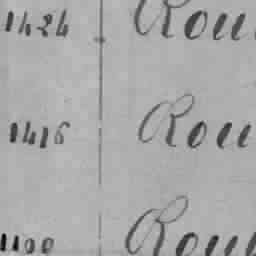 1424 Rou
1416 Rou
1100 Rou